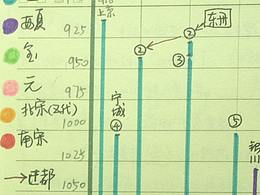 上京
西夏 925
② 东丹
②
金 950
③
元 975
北宋(五代) 1000
宁城
④
⑤
南宋 1025
→迁都 1050